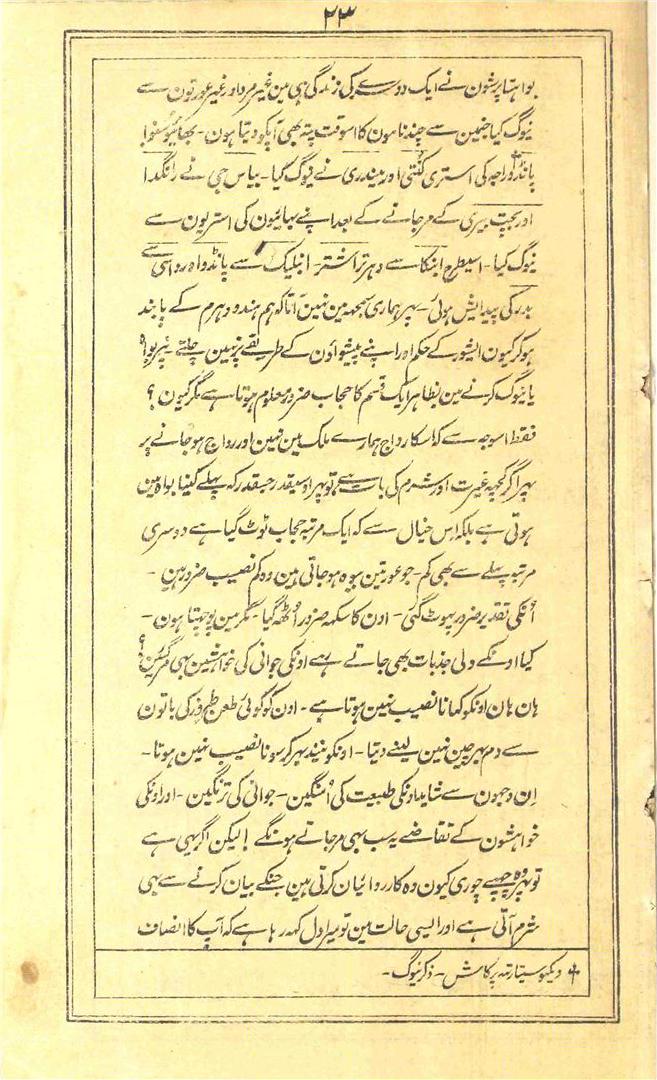 ۲۳
بواہتا پرشون نے ایک دوسرے کی زندگی ہی مین غیر مرد اور غیر عورتون سے
نیوگ کیا جنمین سے چند نامون کا اسوقت پتہ بھی آپکو دیتا ہون۔ بھائیو سنو!
پانڈو راجہ کی استری کنتی اور میندری نے نیوگ کیا۔ بیاس جی نے رانگدا
اور بچپتر بیری کے مرجانے کے بعد اپنے بہائیون کی استریون سے
نیوگ کیا۔ اسیطرح ابنکا سے دہرتراشتر۔ انبلیک سے پانڈو اور داسی سے
بدر کی پیدایش ہوئی۔ پہر ہماری سمجہہ مین نہین آتا کہ ہم ہندو دہرم کے پابند
ہوکر کیون ایشور کے حکم اور اپنے پیشواؤن کے طریقے پر نہین چلتے۔ پنر بواہ
یا نیوگ کرنے مین بظاہر ایک قسم کا حجاب ضرور معلوم ہوتا ہے مگر کیون؟
فقط اسوجہ سے کہ اسکا رواج ہمارے ملک مین نہین اور رواج ہوجانے پر
پہر اگر کچہہ غیرت اور شرم کی بات ہے تو پہر اوسیقدر جسقدر کہ پہلے کنیا بواہ مین
ہوتی ہے بلکہ اس خیال سے کہ ایک مرتبہ حجاب ٹوٹ گیا ہے دوسری
مرتبہ پہلے سے بھی کم۔ جو عورتین بیوہ ہوجاتی ہین وہ کم نصیب ضرور ہین۔
اُنکی تقدیر ضرور پہوٹ گئی۔ اون کا سکہہ ضرور اُٹھہ گیا۔ مگر مین پوچہتا ہون۔
کیا اونکے دلی جذبات بھی جاتے رہے اونکی جوانی کی خواہشین بہی مرگئین؟
ہان ہان اونکو کہانا نصیب نہین ہوتا ہے۔ اون کو کوئی طعن طنز کی باتون
سے دم بہر چین نہین لینے دیتا۔ اونکو نیند بہر کر سونا نصیب نہین ہوتا۔
اِن وجہون سے شاید اونکی طبیعت کی اُمنگین۔ جوانی کی ترنگین۔ اور اونکی
خواہشون کے تقاضے یہ سب بہی مرجاتے ہونگے! لیکن اگر یہی ہے
تو پہر وہ چہپے چوری کیون وہ کارروائیان کرتی ہین جنکے بیان کرنے سے بہی
شرم آتی ہے اور ایسی حالت مین تو میرا دل کہہ رہا ہے کہ آپ کا انصاف
† دیکہو ستیارتہہ پرکاش۔ ذکر نیوگ۔